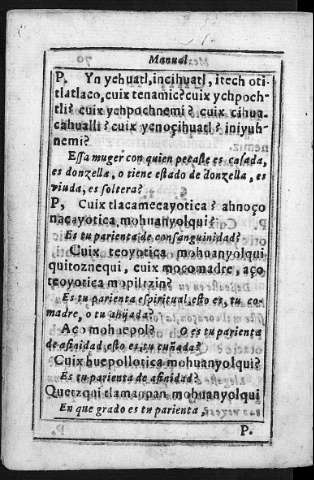 Manual
P. Yn yehuatl, incihuatl, itech oti-
tlatlaco, cuix tenamic? cuix ychpoch-
tli? cuix ychpochnemi? cuix cihua-
cahualli? cuix ycnoçihuatl? iniyuh-
nemi?
Essa muger con quien pecaste es casada,
es donzella, o tiene estado de donzella, es
viuda, es soltera?
P, Cuix tlacamecayotica? ahnoço
nacayotica mohuanyolqui?
Es tu parienta de consanguinidad?
Cuix teoyotica mohuanyolqui
quitoznequi, cuix mocomadre, aço
teoyotica mopiltzin?
Es tu parienta espiritual, esto es, tu co-
madre, o tu ahijada?
Aço mohuepol? O es tu parienta
de afinidad, esto es, tu cuñada?
Cuix huepollotica mohuanyolqui?
Es tu parienta de afinidad?
Quetzqui tlamanpan mohuanyolqui
En que grado es tu parienta,
P.